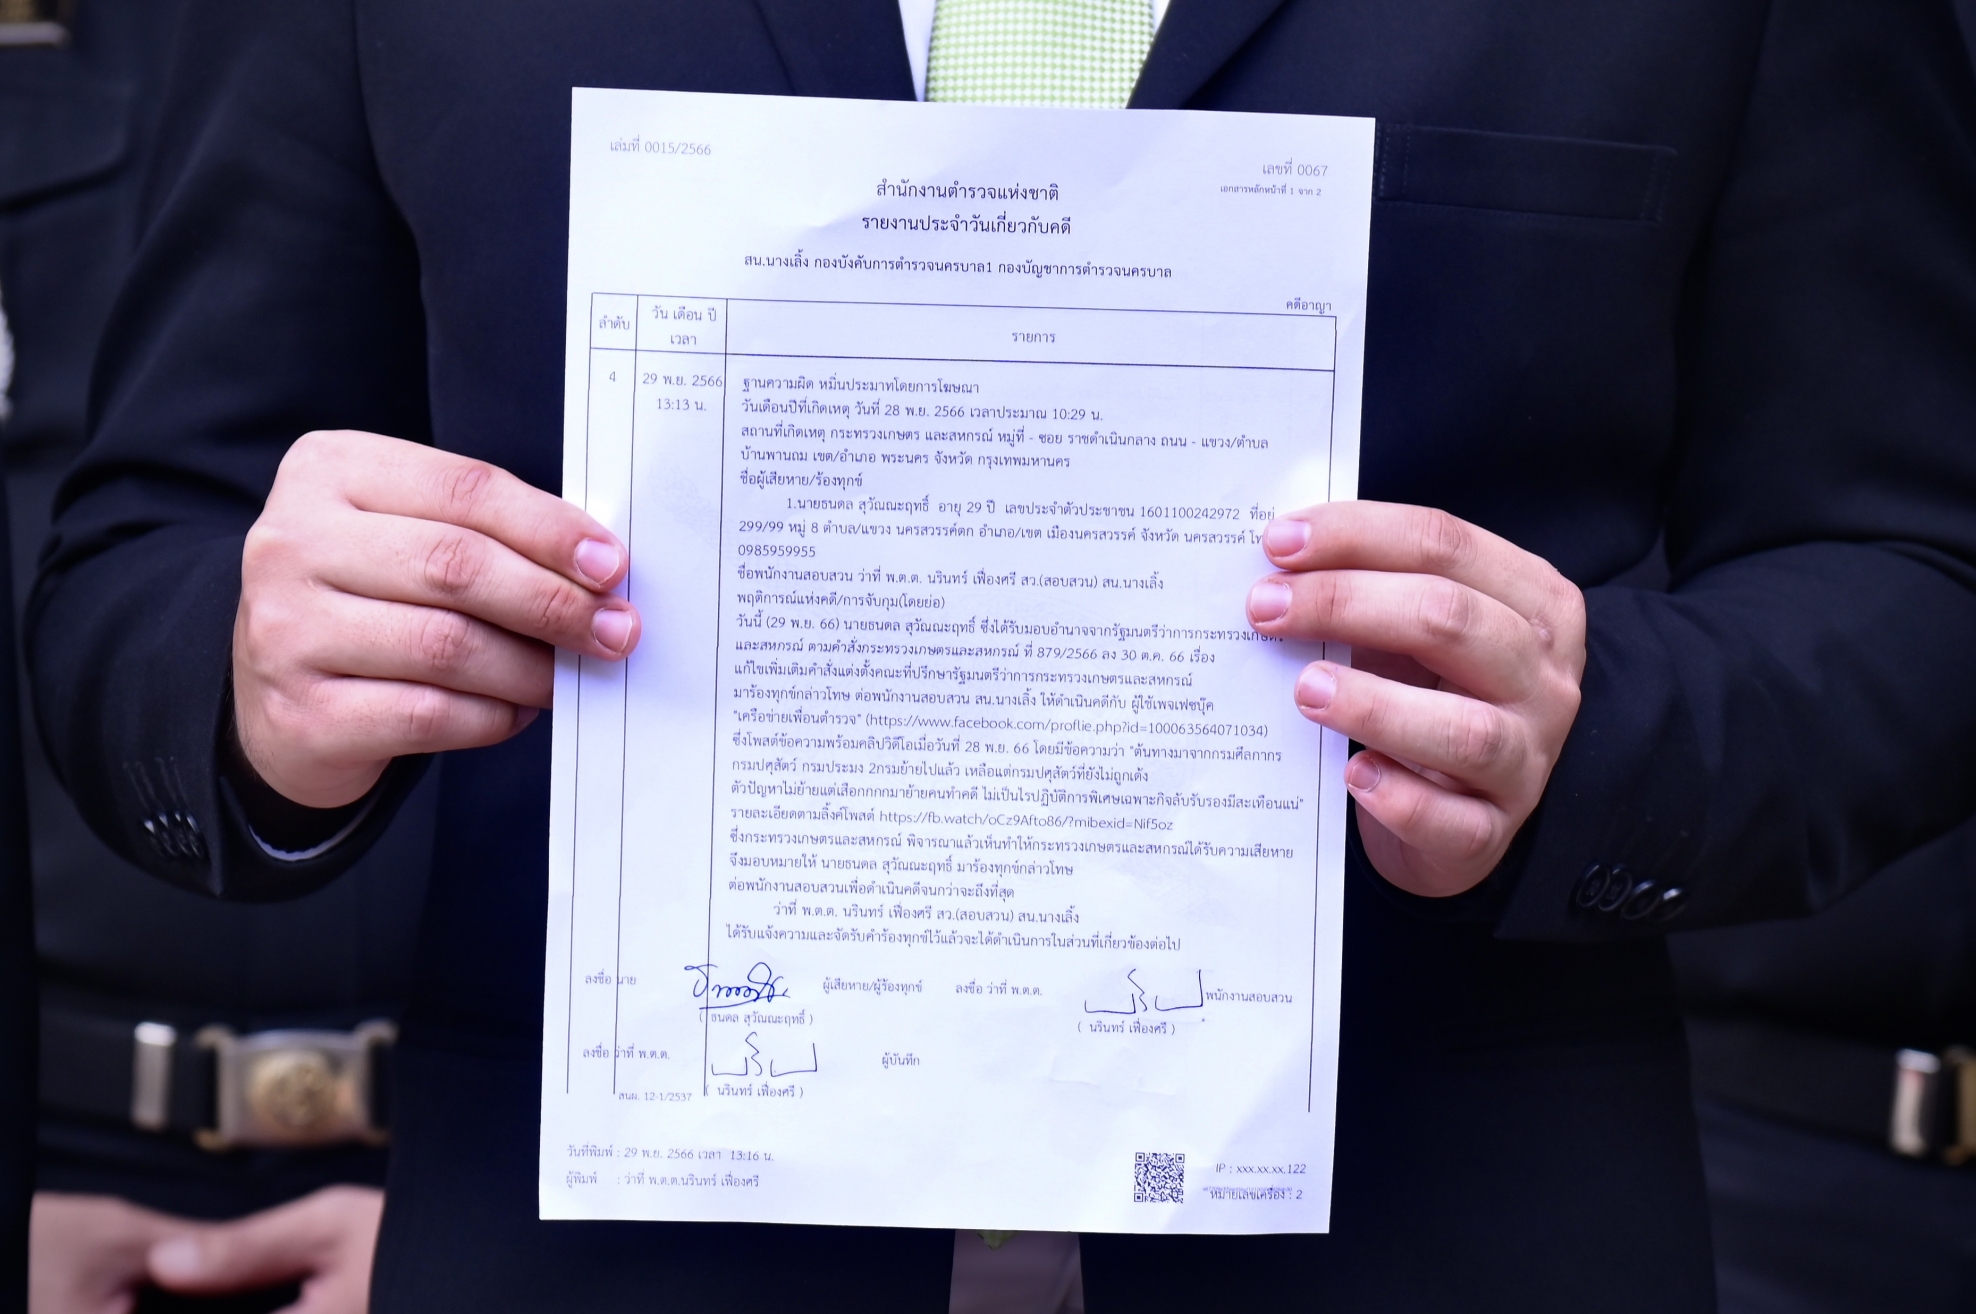 เล่มที่ 0015/2566
เลขที่ 0067
เอกสารหลักหน้าที่ 1 จาก 2
สำนักงานตำรวจแห่งชาติ
รายงานประจำวันเกี่ยวกับคดี
สน.นางเลิ้ง กองบังคับการตำรวจนครบาล1 กองบัญชาการตำรวจนครบาล
คดีอาญา
ลำดับ
วัน เดือน ปี
เวลา
รายการ
4
29 พ.ย. 2566
13:13 น.
ฐานความผิด หมิ่นประมาทโดยการโฆษณา
วันเดือนปีที่เกิดเหตุ วันที่ 28 พ.ย. 2566 เวลาประมาณ 10:29 น.
สถานที่เกิดเหตุ กระทรวงเกษตร และสหกรณ์ หมู่ที่ - ซอย ราชดำเนินกลาง ถนน - แขวง/ตำบล
บ้านพานถม เขต/อำเภอ พระนคร จังหวัด กรุงเทพมหานคร
ชื่อผู้เสียหาย/ร้องทุกข์
1.นายธนดล สุวัณณะฤทธิ์ อายุ 29 ปี เลขประจำตัวประชาชน 1601100242972 ที่อยู่
299/99 หมู่ 8 ตำบล/แขวง นครสวรรค์ตก อำเภอ/เขต เมืองนครสวรรค์ จังหวัด นครสวรรค์
0985959955
ชื่อพนักงานสอบสวน ว่าที่ พ.ต.ต. นรินทร์ เฟื่องศรี สว.(สอบสวน) สน.นางเลิ้ง
พฤติการณ์แห่งคดี/การจับกุม(โดยย่อ)
วันนี้ (29 พ.ย. 66) นายธนดล สุวัณณะฤทธิ์ ซึ่งได้รับมอบอำนาจจากรัฐมนตรีว่าการกระทรวงเกษตร
และสหกรณ์ ตามคำสั่งกระทรวงเกษตรและสหกรณ์ ที่ 879/2566 ลง 30 ต.ค. 66 เรื่อง
แก้ไขเพิ่มเติมคำสั่งแต่งตั้งคณะที่ปรึกษารัฐมนตรีว่าการกระทรวงเกษตรและสหกรณ์
มาร้องทุกข์กล่าวโทษ ต่อพนักงานสอบสวน สน.นางเลิ้ง ให้ดำเนินคดีกับ ผู้ใช้เพจเฟซบุ๊ค
"เครือข่ายเพื่อนตำรวจ" (https://www.facebook.com/proflie.php?id=100063564071034)
ซึ่งโพสต์ข้อความพร้อมคลิปวิดีโอเมื่อวันที่ 28 พ.ย. 66 โดยมีข้อความว่า "ต้นทางมาจากกรมศุลกากร
กรมปศุสัตว์ กรมประมง 2กรมย้ายไปแล้ว เหลือแต่กรมปศุสัตว์ที่ยังไม่ถูกเด้ง
ตัวปัญหาไม่ย้ายแต่เสือกกกกมาย้ายคนทำคดี ไม่เป็นไรปฏิบัติการพิเศษเฉพาะกิจลับรับรองมีสะเทือนแน่"
รายละเอียดตามลิ้งค์โพสต์ https://fb.watch/oCz9Afto86/?mibexid=Nif5oz
ซึ่งกระทรวงเกษตรและสหกรณ์ พิจารณาแล้วเห็นทำให้กระทรวงเกษตรและสหกรณ์ได้รับความเสียหาย
จึงมอบหมายให้ นายธนดล สุวัณณะฤทธิ์ มาร้องทุกข์กล่าวโทษ
ต่อพนักงานสอบสวนเพื่อดำเนินคดีจนกว่าจะถึงที่สุด
ว่าที่ พ.ต.ต. นรินทร์ เฟื่องศรี สว.(สอบสวน) สน.นางเลิ้ง
ได้รับแจ้งความและจัดรับคำร้องทุกข์ไว้แล้วจะได้ดำเนินการในส่วนที่เกี่ยวข้องต่อไป
ลงชื่อ นาย ผู้เสียหาย/ผู้ร้องทุกข์ ลงชื่อ ว่าที่ พ.ต.ต. พนักงานสอบสวน
( ธนดล สุวัณณะฤทธิ์ ) ( นรินทร์ เฟื่องศรี )
ลงชื่อ ว่าที่ พ.ต.ต. ผู้บันทึก
( นรินทร์ เฟื่องศรี )
สนผ. 12-1/2537
วันที่พิมพ์ : 29 พ.ย. 2566 เวลา 13:16 น.
ผู้พิมพ์ : ว่าที่ พ.ต.ต.นรินทร์ เฟื่องศรี
IP : xxx.xx.xx.122
หมายเลขเครื่อง : 2